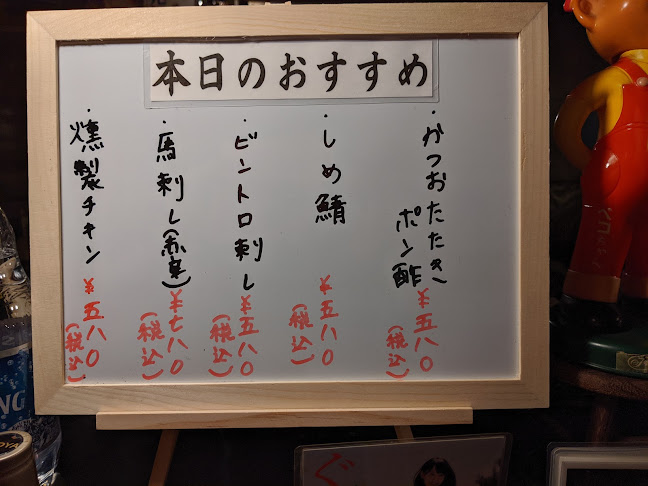 本日のおすすめ
・かつおたたき
ポン酢
¥五八〇
(税込)
・しめ鯖
¥五八〇
(税込)
・ビントロ刺し
¥五八〇
(税込)
・馬刺し(赤身)
¥七八〇
(税込)
・燻製チキン
¥五八〇
(税込)
NG
ぐ